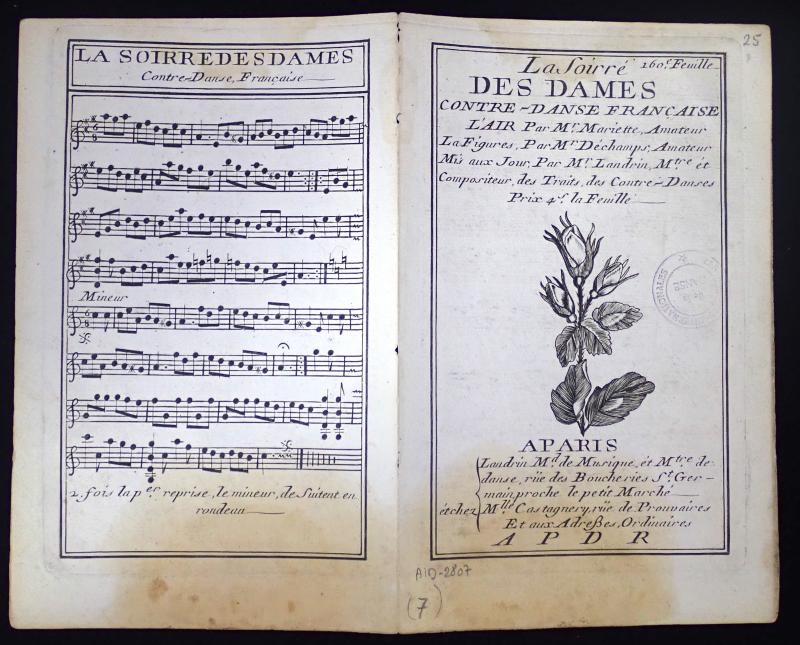 LA SOIRREDESDAMES
Contre-Danse, Française
Mineur
2. fois la p.er reprise, le mineur, de Suitent en
rondeau
25
La Soirré 160.e Feuille
DES DAMES
CONTRE-DANSE FRANÇAISE
L'AIR Par M.r Mariette, Amateur
La Figures, Par M.r Déchamps, Amateur
Mis aux Jour, Par M.r Landrin, M.tre ét
Compositeur, des Traits, des Contre-Danses
Prix 4.s la Feuille
APARIS
Landrin M.d de Musique, ét M.tre de
danse, rüe des Boucheries S.t Ger-
main proche le petit Marché
ét chez M.lle Castagnery, rüe de Prouvaires
Et aux Adreßes, Ordinaires
A P D R
AID-2807
(7)